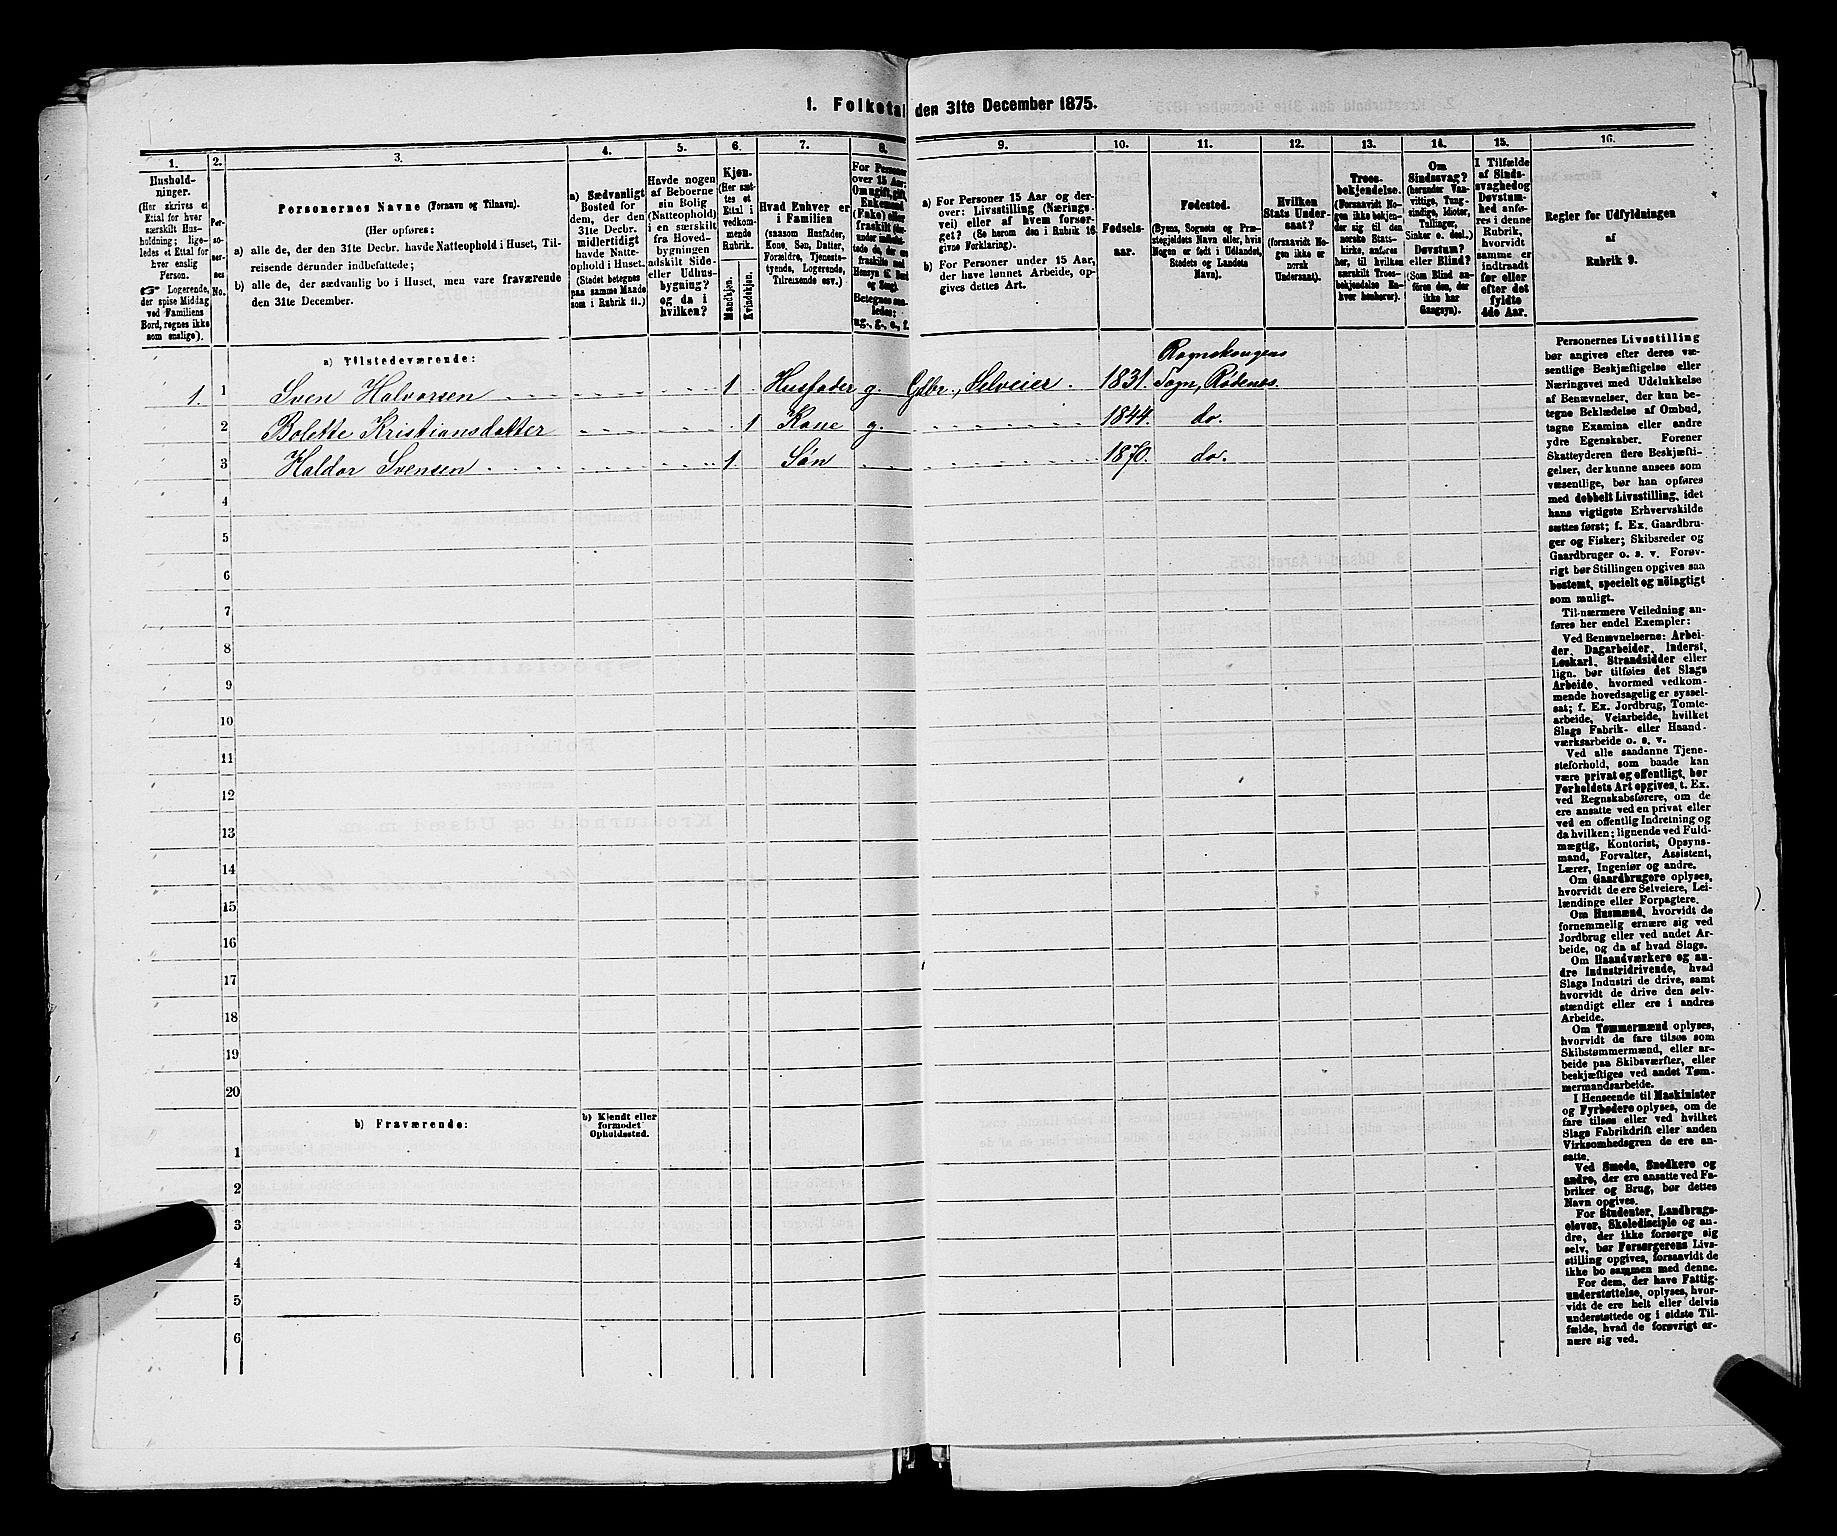 1. Folketal den 31te December 1875.
1.
Hushold-
ninger.
(Her skrives et
Ettal for hver
særskilt Hus-
holdning; lige-
ledes et Ettal for
hver enslig
Person.
☞ Logerende,
der spise Middag
ved Familiens
Bord, regnes ikke
som enslige).
2.
Per-
so-
ner-
nes
No.
3.
Personernes Navne (Fornavn og Tilnavn).
(Her opføres:
a) alle de, der den 31te Decbr. havde Natteophold i Huset, Til-
reisende derunder indbefattede;
b) alle de, der sædvanlig bo i Huset, men vare fraværende
den 31te December.
4.
a) Sædvanligt
Bosted for
dem, der den
31te Decbr.
midlertidigt
havde Natte-
ophold i Huset.
(Stedet betegnes
paa samme Maade
som i Rubrik 11.)
5.
Havde nogen
af Beboerne
sin Bolig
(Natteophold)
i en særskilt
fra Hoved-
bygningen
adskilt Side-
eller Udhus-
bygning?
og da i
hvilken?
6.
Kjøn.
(Her sæt-
tes et
Ettal i
vedkom-
mende
Rubrik.
Mandkjøn.
Kvindekjøn.
7.
Hvad Enhver er
i Familien
(saasom Husfader,
Kone, Søn, Datter,
Forældre, Tjeneste-
tyende, Logerende,
Tilreisende osv.)
8.
For Personer
over 15 Aar:
Om ugift, gift,
Enkemand
(Enke) eller
fraskilt
Betegnes saa-
ledes:
ug., g., e., f.
9.
a) For Personer 15 Aar og der-
over: Livsstilling (Nærings-
vei) eller af hvem forsør-
get? (Se herom den i Rubrik 16
givne Forklaring).
b) For Personer under 15 Aar,
der have lønnet Arbeide, op-
gives dettes Art.
10.
Fødsels-
aar.
11.
Fødested.
(Byens, Sognets og Præ-
stegjeldets Navn eller, hvis
Nogen er født i Udlandet,
Stedets og Landets
Navn).
12.
Hvilken
Stats Under-
saat?
(forsaavidt No-
gen ikke er
norsk
Undersaat).
13.
Troes-
bekjendelse.
(Forsaavidt No-
gen ikke bekjen-
der sig til den
norske Stats-
kirke, anføres
her, til hvilken
særskilt Troes-
bekjendelse En-
hver henhører).
14.
Om
Sindssvag?
(herunder Van-
vittige, Tung-
sindige, Idioter,
Tullinger,
Sinker o. desl.)
Døvstum?
eller Blind?
(Som Blind an-
føres den, der
ikke har
Gangsyn).
15.
I Tilfælde
af Sinds-
svaghed og
Døvstum-
hed anfø-
res i denne
Rubrik,
hvorvidt
samme er
indtraadt
før eller
efter det
fyldte
4de Aar.
16.
Regler for Udfyldningen
af
Rubrik 9.
a) Tilstedeværende:
Ragnskougens
1. 1 Sven Halvorsen 1 Husfader g. Gdbr., Selveier. 1831. Sogn, Rödenes.
2 Bolette Kristiansdatter 1 Kone g. 1844. do.
3 Haldor Svensen 1 Søn 1870. do.
4
5
6
7
8
9
10
11
12
13
14
15
16
17
18
19
20
b) Fraværende:
b) Kjendt eller
formodet
Opholdssted.
1
2
3
4
5
6
Personernes Livsstilling
bør angives efter deres væ-
sentlige Beskjæftigelse eller
Næringsvei med Udelukkelse
af Benævnelser, der kun be-
tegne Beklædelse af Ombud,
tagne Examina eller andre
ydre Egenskaber. Forener
Skatteyderen flere Beskjæfti-
gelser, der kunne ansees som
væsentlige, bør han opføres
med dobbelt Livsstilling, idet
hans vigtigste Erhvervskilde
sættes først; f. Ex. Gaardbru-
ger og Fisker; Skibsreder og
Gaardbruger o. s. v. Forøv-
rigt bør Stillingen opgives saa
bestemt, specielt og nöiagtigt
som muligt.
Til nærmere Veiledning an-
føres her endel Exempler:
Ved Benævnelserne: Arbei-
der, Dagarbeider, Inderst,
Løskarl, Strandsidder eller
lign. bør tilføies det Slags
Arbeide, hvormed vedkom-
mende hovedsagelig er syssel-
sat; f. Ex. Jordbrug, Tomte-
arbeide, Veiarbeide, hvilket
Slags Fabrik- eller Haand-
værksarbeide o. s. v.
Ved alle saadanne Tjene-
steforhold, som baade kan
være privat og offentligt, bør
Forholdets Art opgives, t. Ex.
ved Regnskabsførere, om de
ere ansatte ved en privat eller
ved en offentlig Indretning og
da hvilken; lignende ved Fuld-
mægtig, Kontorist, Opsyns-
mand, Forvalter, Assistent,
Lærer, Ingeniør og andre.
Om Gaardbrugere oplyses,
hvorvidt de ere Selveiere, Lei-
lændinge eller Forpagtere.
Om Husmænd, hvorvidt de
fornemmelig ernære sig ved
Jordbrug eller ved andet Ar-
beide, og da af hvad Slags.
Om Haandværkere og an-
dre Industridrivende, hvad
Slags Industri de drive, samt
hvorvidt de drive den selv-
stændigt eller ere i andres
Arbeide.
Om Tømmermænd oplyses,
hvorvidt de fare tilsøs som
Skibstømmermænd, eller ar-
beide paa Skibsværfter, eller
beskjæftiges ved andet Tøm-
mermandsarbeide.
I Henseende til Maskinister
og Fyrbødere oplyses, om de
fare tilsøs eller ved hvilket
Slags Fabrikdrift eller anden
Virksomhedsgren de ere an-
satte.
Ved Smede, Snedkere og
andre, der ere ansatte ved Fa-
briker og Brug, bør dettes
Navn opgives.
For Studenter, Landbrugs-
elever, Skoledisciple og an-
dre, der ikke forsørge sig
selv, bør Forsørgerens Livs-
stilling opgives, forsaavidt de
ikke bo sammen med denne.
For dem, der have Fattig-
understøttelse, oplyses, hvor-
vidt de ere helt eller delvis
understøttede og i sidste Til-
fælde, hvad de forøvrigt er-
nære sig ved.